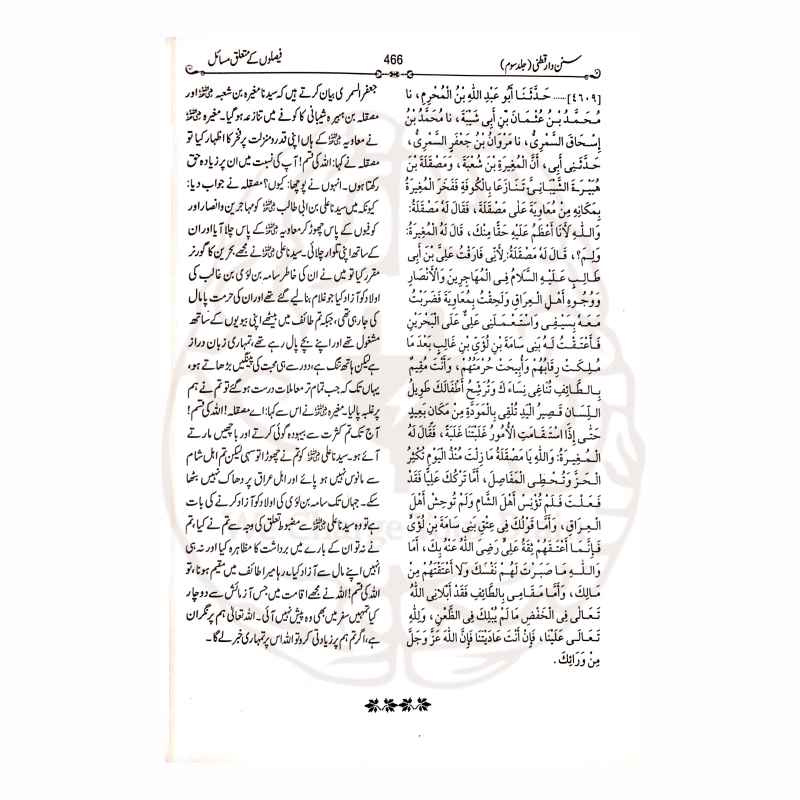 سنن دارقطنی (جلد سوم)
466
فیصلوں کے متعلق مسائل
[٤٦٠٩] ..... حَدَّثَنَا أَبُو عَبْدِ اللّٰهِ بْنُ الْمُحْرِمِ، نا
مُحَمَّدُ بْنُ عُثْمَانَ بْنِ أَبِي شَيْبَةَ، نا مُحَمَّدُ بْنُ
إِسْحَاقَ السَّمُرِيُّ، نا مَرْوَانُ بْنُ جَعْفَرٍ السَّمُرِيُّ،
حَدَّثَنِي أَبِي، أَنَّ الْمُغِيرَةَ بْنَ شُعْبَةَ، وَمَصْقَلَةَ بْنَ
هُبَيْرَةَ الشَّيْبَانِيَّ تَنَازَعَا بِالْكُوفَةِ فَفَخَرَ الْمُغِيرَةُ
بِمَكَانِهِ مِنْ مُعَاوِيَةَ عَلَى مَصْقَلَةَ، فَقَالَ لَهُ مَصْقَلَةُ:
وَاللّٰهِ لَأَنَا أَعْظَمُ عَلَيْهِ حَقًّا مِنْكَ، قَالَ لَهُ الْمُغِيرَةُ:
وَلِمَ؟، قَالَ لَهُ مَصْقَلَةُ: لِأَنِّي فَارَقْتُ عَلِيَّ بْنَ أَبِي
طَالِبٍ عَلَيْهِ السَّلَامُ فِي الْمُهَاجِرِينَ وَالْأَنْصَارِ
وَوُجُوهِ أَهْلِ الْعِرَاقِ وَلَحِقْتُ بِمُعَاوِيَةَ فَضَرَبْتُ
مَعَهُ بِسَيْفِي وَاسْتَعْمَلَنِي عَلِيٌّ عَلَى الْبَحْرَيْنِ
فَأَعْتَقْتُ لَهُ بَنِي سَامَةَ بْنِ لُؤَيِّ بْنِ غَالِبٍ بَعْدَ مَا
مُلِكَتْ رِقَابُهُمْ وَأُبِيحَتْ حُرْمَتُهُمْ، وَأَنْتَ مُقِيمٌ
بِالطَّائِفِ تُنَاغِي نِسَاءَكَ وَتُرَشِّحُ أَطْفَالَكَ طَوِيلُ
اللِّسَانِ قَصِيرُ الْيَدِ تُلْقِي بِالْمَوَدَّةِ مِنْ مَكَانٍ بَعِيدٍ
حَتَّى إِذَا اسْتَقَامَتِ الْأُمُورُ غَلَبْتَنَا غَلَبَةً، فَقَالَ لَهُ
الْمُغِيرَةُ: وَاللّٰهِ يَا مَصْقَلَةُ مَا زِلْتَ مُنْذُ الْيَوْمِ تُكْثِرُ
الْحَزَّ وَتُخْطِي الْمَفَاصِلَ، أَمَّا تَرْكُكَ عَلِيًّا فَقَدْ
فَعَلْتَ فَلَمْ تُؤْنِسْ أَهْلَ الشَّامِ وَلَمْ تُوحِشْ أَهْلَ
الْعِرَاقِ، وَأَمَّا قَوْلُكَ فِي عِتْقِ بَنِي سَامَةَ بْنِ لُؤَيٍّ
فَإِنَّمَا أَعْتَقَهُمْ ثِقَةُ عَلِيٍّ رَضِيَ اللّٰهُ عَنْهُ بِكَ، أَمَا
وَاللّٰهِ مَا صَبَرْتَ لَهُمْ نَفْسَكَ وَلَا أَعْتَقْتَهُمْ مِنْ
مَالِكَ، وَأَمَّا مَقَامِي بِالطَّائِفِ فَقَدْ أَبْلَانِي اللّٰهُ
تَعَالَى فِي الْخَفْضِ مَا لَمْ يُبْلِكَ فِي الظَّعْنِ، وَلِلّٰهِ
تَعَالَى عَلَيْنَا، فَإِنْ أَنْتَ عَادَيْتَنَا فَإِنَّ اللّٰهَ عَزَّ وَجَلَّ
مِنْ وَرَائِكَ.
جعفر السمری بیان کرتے ہیں کہ سیدنا مغیرہ بن شعبہ ؓ اور
مصقلہ بن ہبیرہ شیبانی کا کوفے میں تنازعہ ہو گیا۔ مغیرہ ؓ
نے معاویہ ؓ کے ہاں اپنی قدر و منزلت پر فخر کا اظہار کیا تو
مصقلہ نے کہا: اللہ کی قسم! آپ کی نسبت میں ان پر زیادہ حق
رکھتا ہوں۔ انہوں نے پوچھا: کیوں؟ مصقلہ نے جواب دیا:
کیونکہ میں سیدنا علی بن ابی طالب ؓ کو مہاجرین و انصار اور
کوفیوں کے پاس چھوڑ کر معاویہ ؓ کے پاس چلا آیا اور ان
کے ساتھ اپنی تلوار چلائی۔ سیدنا علی ؓ نے مجھے بحرین کا گورنر
مقرر کیا تو میں نے ان کی خاطر سامہ بن لؤی بن غالب کی
اولاد کو آزاد کیا جو غلام بنا لیے گئے تھے اور ان کی حرمت پامال
کی جا رہی تھی، جبکہ تم طائف میں بیٹھے اپنی بیویوں کے ساتھ
مشغول تھے اور اپنے بچے پال رہے تھے، تمہاری زبان دراز
ہے لیکن ہاتھ تنگ ہے، دور سے ہی محبت کی پینگیں بڑھاتے ہو،
یہاں تک کہ جب تمام تر معاملات درست ہو گئے تو تم نے ہم
پر غلبہ پا لیا۔ مغیرہ ؓ نے اس سے کہا: اے مصقلہ! اللہ کی قسم!
آج تک تم کثرت سے بیہودہ گوئی کرتے اور باچھیں مارتے
آئے ہو۔ سیدنا علی ؓ کو تم نے چھوڑا تو سہی لیکن تم اہل شام
سے مانوس نہیں ہو پائے اور اہل عراق پر دھاک نہیں بٹھا
سکے۔ جہاں تک سامہ بن لؤی کی اولاد کو آزاد کرنے کی بات
ہے تو وہ سیدنا علی ؓ سے مضبوط تعلق کی وجہ سے تم نے کیا، تم
نے نہ تو ان کے بارے میں برداشت کا مظاہرہ کیا اور نہ ہی
انہیں اپنے مال سے آزاد کیا۔ رہا میرا طائف میں مقیم ہونا، تو
اللہ کی قسم! اللہ نے مجھے اقامت میں جس آزمائش سے دوچار
کیا تمہیں سفر میں بھی وہ پیش نہیں آئی۔ اللہ تعالیٰ ہم پر نگران
ہے، اگر تم ہم پر زیادتی کرو تو اللہ اس پر تمہاری خبر لے گا۔